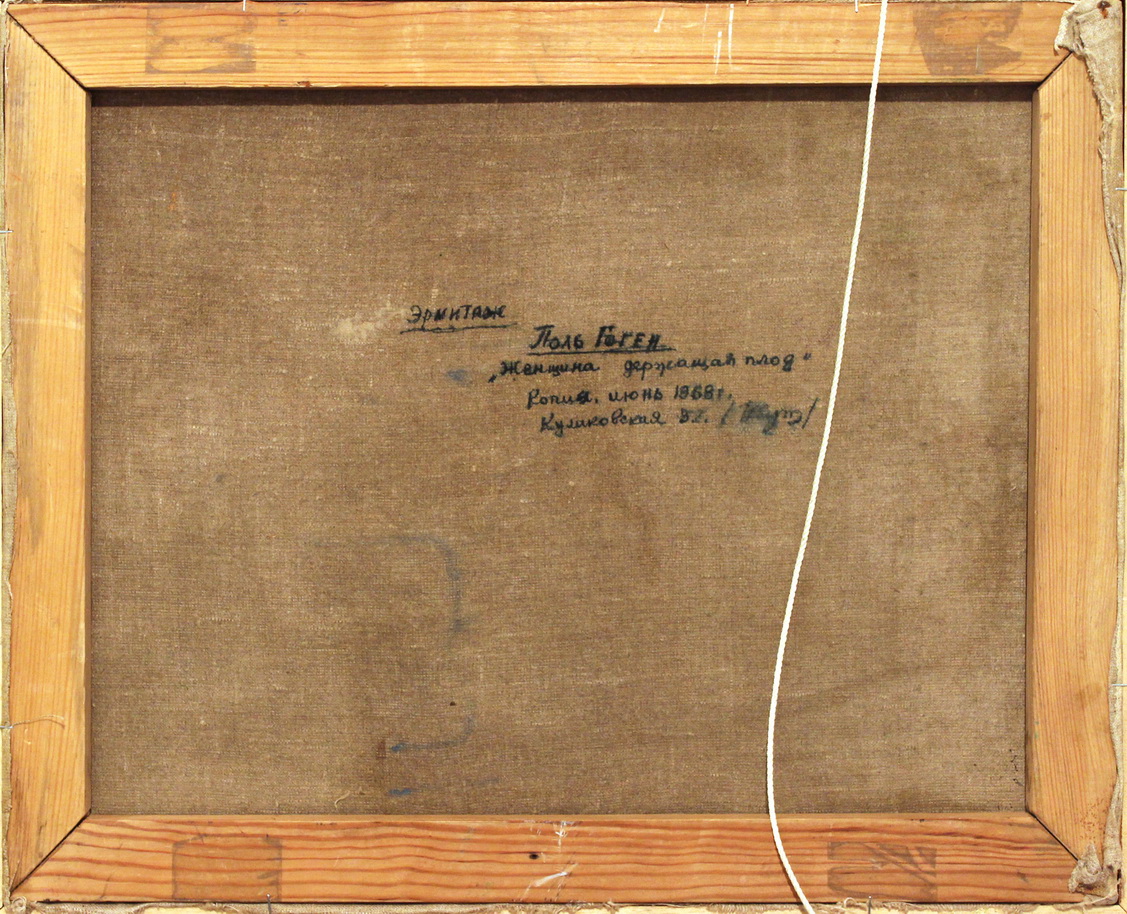 Эрмитаж
Поль Гоген
„Женщина держащая плод"
Копия. июнь 1968г.
Куликовская